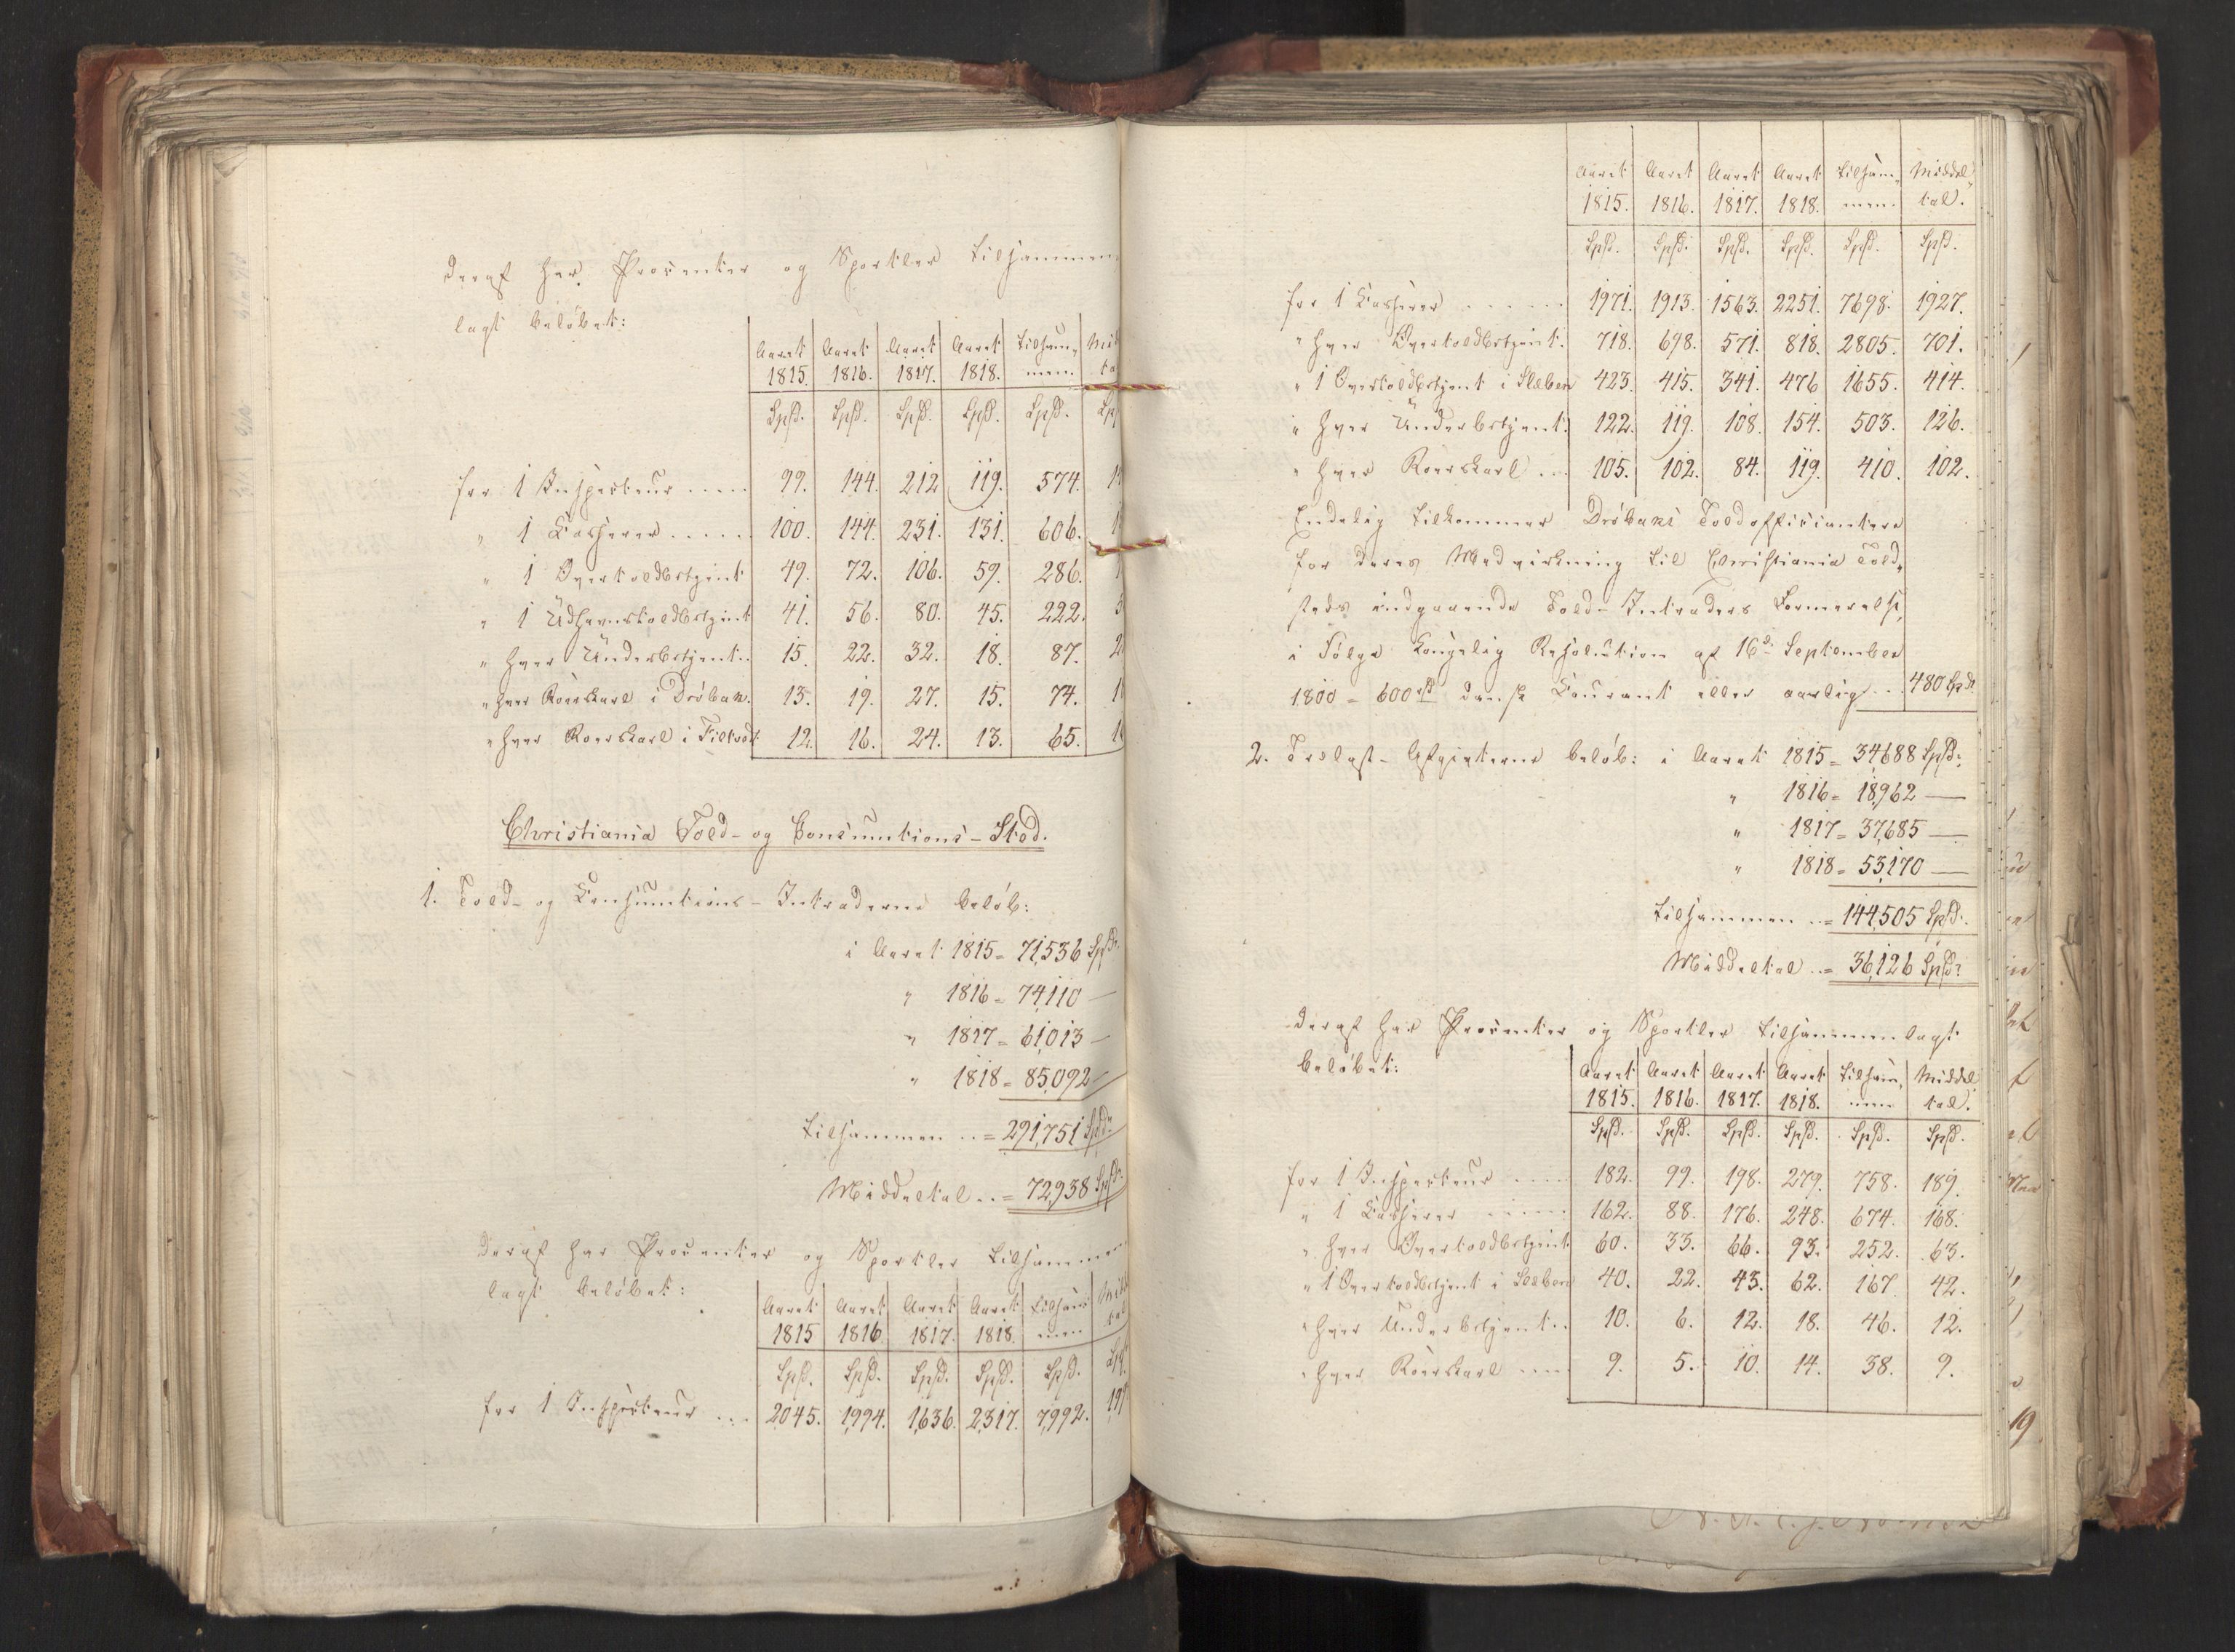 Deraf har Procenter og Sportler tilsammen
lagt beløbet:
Aaret Aaret Aaret Aaret tilsam-
1815. 1816. 1817. 1818. men.
Spd. Spd. Spd. Spd. Spd.
for 1 Inspecteur ..... 99. 144. 212 119. 574.
" 1 Casserer ..... 100. 144. 231. 131. 606.
" 1 Overtoldbetjent 49. 72. 106. 59. 286.
" 1 Udhavnstoldbetjent 41. 56. 80. 45. 222.
" hver Underbetjent .. 15. 22. 32. 18. 87.
" hver Roerskarl i Drøbak. 13. 19. 27. 15. 74.
" hver Roerskarl i Filtvedt 12. 16. 24. 13. 65.
Christiania Told- og Consumtions-Sted.
1. Told- og Consumtions-Intraderne beløb:
i Aaret 1815 = 71,536 Spdr.
" 1816 = 74,110 —
" 1817 = 61,013 —
" 1818 = 85,092 —
tilsammen .. = 291,751 Spdr.
Middeltal .. = 72,938 Spdr.
Deraf har Procenter og Sportler tilsammen
lagt beløbet:
Aaret Aaret Aaret Aaret tilsam-
1815 1816. 1817. 1818. men
Spd. Spd. Spd. Spd. Spd.
for 1 Inspecteur ... 2045. 1,994. 1,636. 2,317. 7,992.
Aaret Aaret Aaret Aaret tilsam- Middel-
1815. 1816. 1817. 1818. men. tal.
Spd. Spd. Spd. Spd. Spd. Spd.
for 1 Casserer ..... 1971. 1913. 1563. 2251. 7698. 1927.
" hver Overtoldbetjent. 718. 698. 571. 818. 2805. 701.
" 1 Overtoldbetjent i Sleben 423. 415. 341. 476 1655. 414.
" hver Underbetjent. 122. 119. 108. 154. 503. 126.
" hver Roerskarl ... 105. 102. 84. 119. 410. 102.
Endelig tilkommer Drøbaks Toldofficiantere
for deres Medvirkning til Christiania Told-
steds indgaaende Told-Intraders Formerelse,
i Følge Kongelig Resolution af 16de September
1800 = 600 rd dansk Courant eller aarlig ... 480 Spd.
2. Trælast-Afgivterne beløb: i Aaret 1815 = 34,688 Spd.
" 1816 = 18,962 —
" 1817 = 37,685 —
" 1818 = 53,170 —
tilsammen .. = 144,505 Spd.
Middeltal .. = 36,126 Spdr.
Deraf har Procenter og Sportler tilsammenlagt
beløbet:
Aaret Aaret Aaret Aaret tilsam- Middel
1815. 1816. 1817. 1818. men tal.
Spd. Spd. Spd. Spd. Spd. Spd.
for 1 Inspecteur .... 182. 99. 198. 279. 758. 189.
" 1 Casserer ..... 162. 88. 176. 248. 674. 168.
" hver Overtoldbetjent 60. 33. 66. 93. 252. 63.
" 1 Overtoldbetjent i Sleben 40. 22. 43. 62. 167. 42.
" hver Underbetjent .. 10. 6. 12. 18. 46. 12.
" hver Roerskarl .... 9. 5. 10. 14. 38. 9.